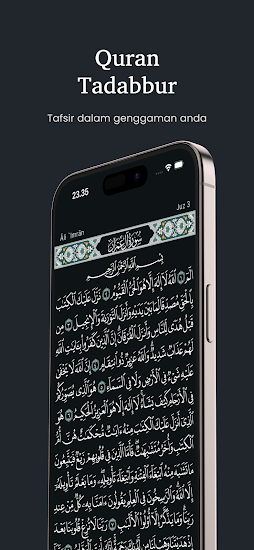 Quran
Tadabbur
Tafsir dalam genggaman anda
23.35
Āli `Imrān
Juz 3
سُورَةُ آلِ عِمْرَانَ
بِسْمِ اللَّهِ الرَّحْمَٰنِ الرَّحِيمِ
الٓمٓ ١ اللَّهُ لَا إِلَٰهَ إِلَّا هُوَ الْحَيُّ الْقَيُّومُ ٢ نَزَّلَ عَلَيْكَ الْكِتَٰبَ
بِالْحَقِّ مُصَدِّقًا لِّمَا بَيْنَ يَدَيْهِ وَأَنزَلَ التَّوْرَىٰةَ وَالْإِنجِيلَ ٣ مِن
قَبْلُ هُدًى لِّلنَّاسِ وَأَنزَلَ الْفُرْقَانَ إِنَّ الَّذِينَ كَفَرُوا بِـَٔايَٰتِ اللَّهِ
لَهُمْ عَذَابٌ شَدِيدٌ وَاللَّهُ عَزِيزٌ ذُو انتِقَامٍ ٤ إِنَّ اللَّهَ لَا يَخْفَىٰ
عَلَيْهِ شَىْءٌ فِى الْأَرْضِ وَلَا فِى السَّمَآءِ ٥ هُوَ الَّذِى يُصَوِّرُكُمْ
فِى الْأَرْحَامِ كَيْفَ يَشَآءُ لَا إِلَٰهَ إِلَّا هُوَ الْعَزِيزُ الْحَكِيمُ ٦ هُوَ
الَّذِى أَنزَلَ عَلَيْكَ الْكِتَٰبَ مِنْهُ ءَايَٰتٌ مُّحْكَمَٰتٌ هُنَّ أُمُّ
الْكِتَٰبِ وَأُخَرُ مُتَشَٰبِهَٰتٌ فَأَمَّا الَّذِينَ فِى قُلُوبِهِمْ زَيْغٌ فَيَتَّبِعُونَ
مَا تَشَٰبَهَ مِنْهُ ابْتِغَآءَ الْفِتْنَةِ وَابْتِغَآءَ تَأْوِيلِهِ وَمَا يَعْلَمُ تَأْوِيلَهُ
إِلَّا اللَّهُ وَالرَّٰسِخُونَ فِى الْعِلْمِ يَقُولُونَ ءَامَنَّا بِهِ كُلٌّ مِّنْ عِندِ
رَبِّنَا وَمَا يَذَّكَّرُ إِلَّا أُولُوا الْأَلْبَٰبِ ٧ رَبَّنَا لَا تُزِغْ قُلُوبَنَا بَعْدَ